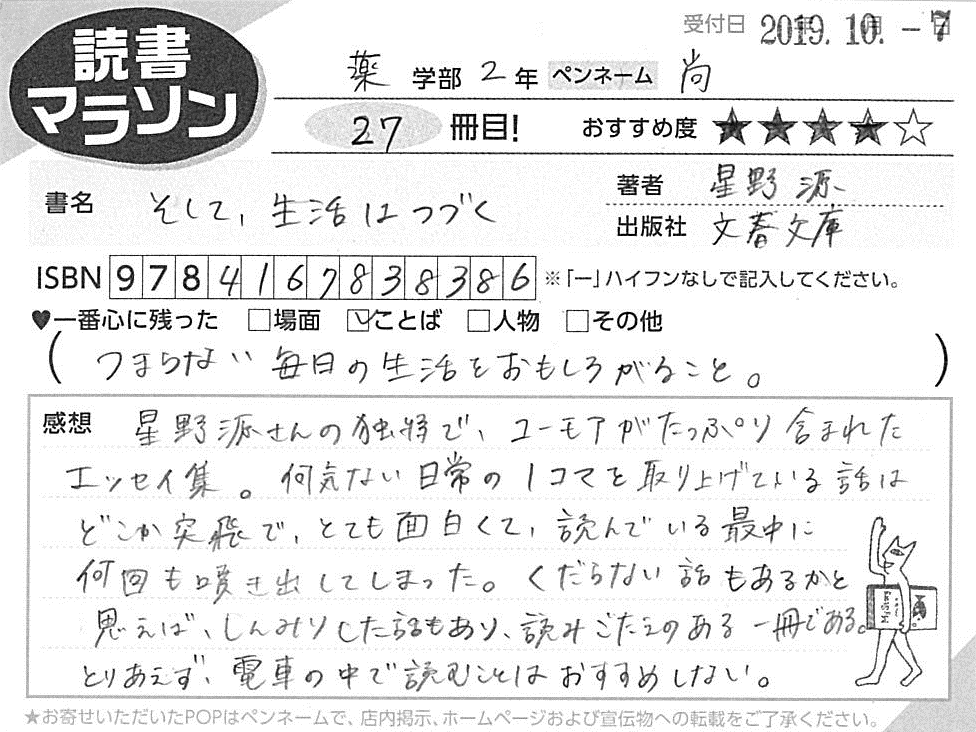 読書
マラソン
受付日 2019. 10. -7
薬 学部 2 年 ペンネーム 尚
27 冊目! おすすめ度 ★★★★☆
書名 そして、生活はつづく
著者 星野 源
出版社 文春文庫
ISBN 9784167838386 ※「ー」ハイフンなしで記入してください。
♥一番心に残った □場面 ☑ことば □人物 □その他
(つまらない毎日の生活をおもしろがること。)
感想 星野源さんの独特で、ユーモアがたっぷり含まれた
エッセイ集。何気ない日常の1コマを取り上げている話は
どこか突飛で、とても面白くて、読んでいる最中に
何回も噴き出してしまった。くだらない話もあるかと
思えば、しんみりした話もあり、読みごたえのある一冊である。
とりあえず、電車の中で読むことはおすすめしない。
★お寄せいただいたPOPはペンネームで、店内掲示、ホームページおよび宣伝物への転載をご了承ください。